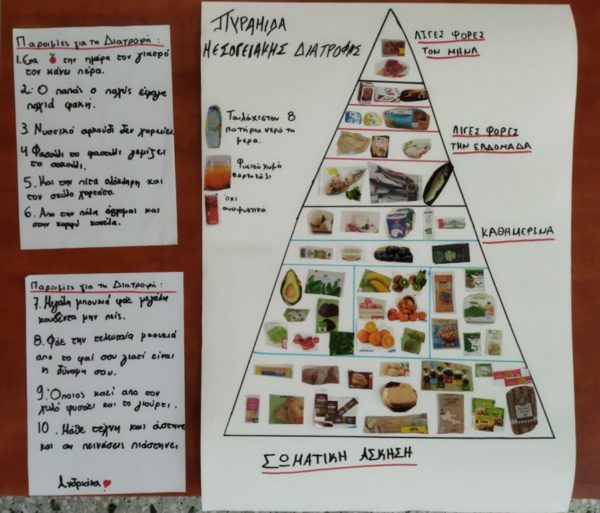 Παροιμίες για τη Διατροφή:
1. Ένα την ημέρα τον γιατρό
τον κάνει πέρα.
2. Ο παπάς ο παχύς έφαγε
παχιά φακή.
3. Νηστικό αρκούδι δεν χορεύει.
4 Φασούλι το φασούλι γεμίζει
το σακούλι.
5. Και την πίτα ολόκληρη και
τον σκύλο χορτάτο.
6. Απο την πόλη έρχομαι και
στην κορφή κανέλα.
Παροιμίες για τη Διατροφή:
7. Μεγάλη μπουκιά φάε μεγάλη
κουβέντα μην πεις.
8. Φάε την τελευταία μπουκιά
απο το φαΐ σου γιατί είναι
η δύναμη σου.
9. Όποιος καεί απο τον
χυλό φυσάει και το γιαούρτι.
10. Μάθε τέχνη και άστηνε
και αν πεινάσεις πιάστηνε.
Ανδριάνα
ΠΥΡΑΜΙΔΑ
ΜΕΣΟΓΕΙΑΚΗΣ ΔΙΑΤΡΟΦΗΣ
ΛΙΓΕΣ ΦΟΡΕΣ
ΤΟΝ ΜΗΝΑ
Τουλάχιστον 8
ποτήρια νερό τη
μέρα.
Φυσικό χυμό
πορτοκάλι
όχι
αναψυκτικά
ΛΙΓΕΣ ΦΟΡΕΣ
ΤΗΝ ΕΒΔΟΜΑΔΑ
ΚΑΘΗΜΕΡΙΝΑ
ΣΩΜΑΤΙΚΗ ΑΣΚΗΣΗ